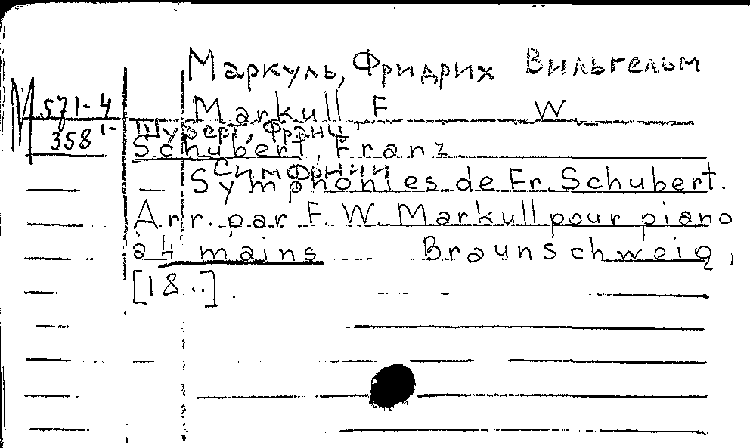 Маркуль, Фридрих Вильгельм
М 571-4 Markull F W
3581- Шуберт, Франц
Schubert, Franz
Симфонии
Symphonies de Fr. Schubert.
Arr. par F. W. Markull pour piano
a 4 mains Braunschweig,
[18..].